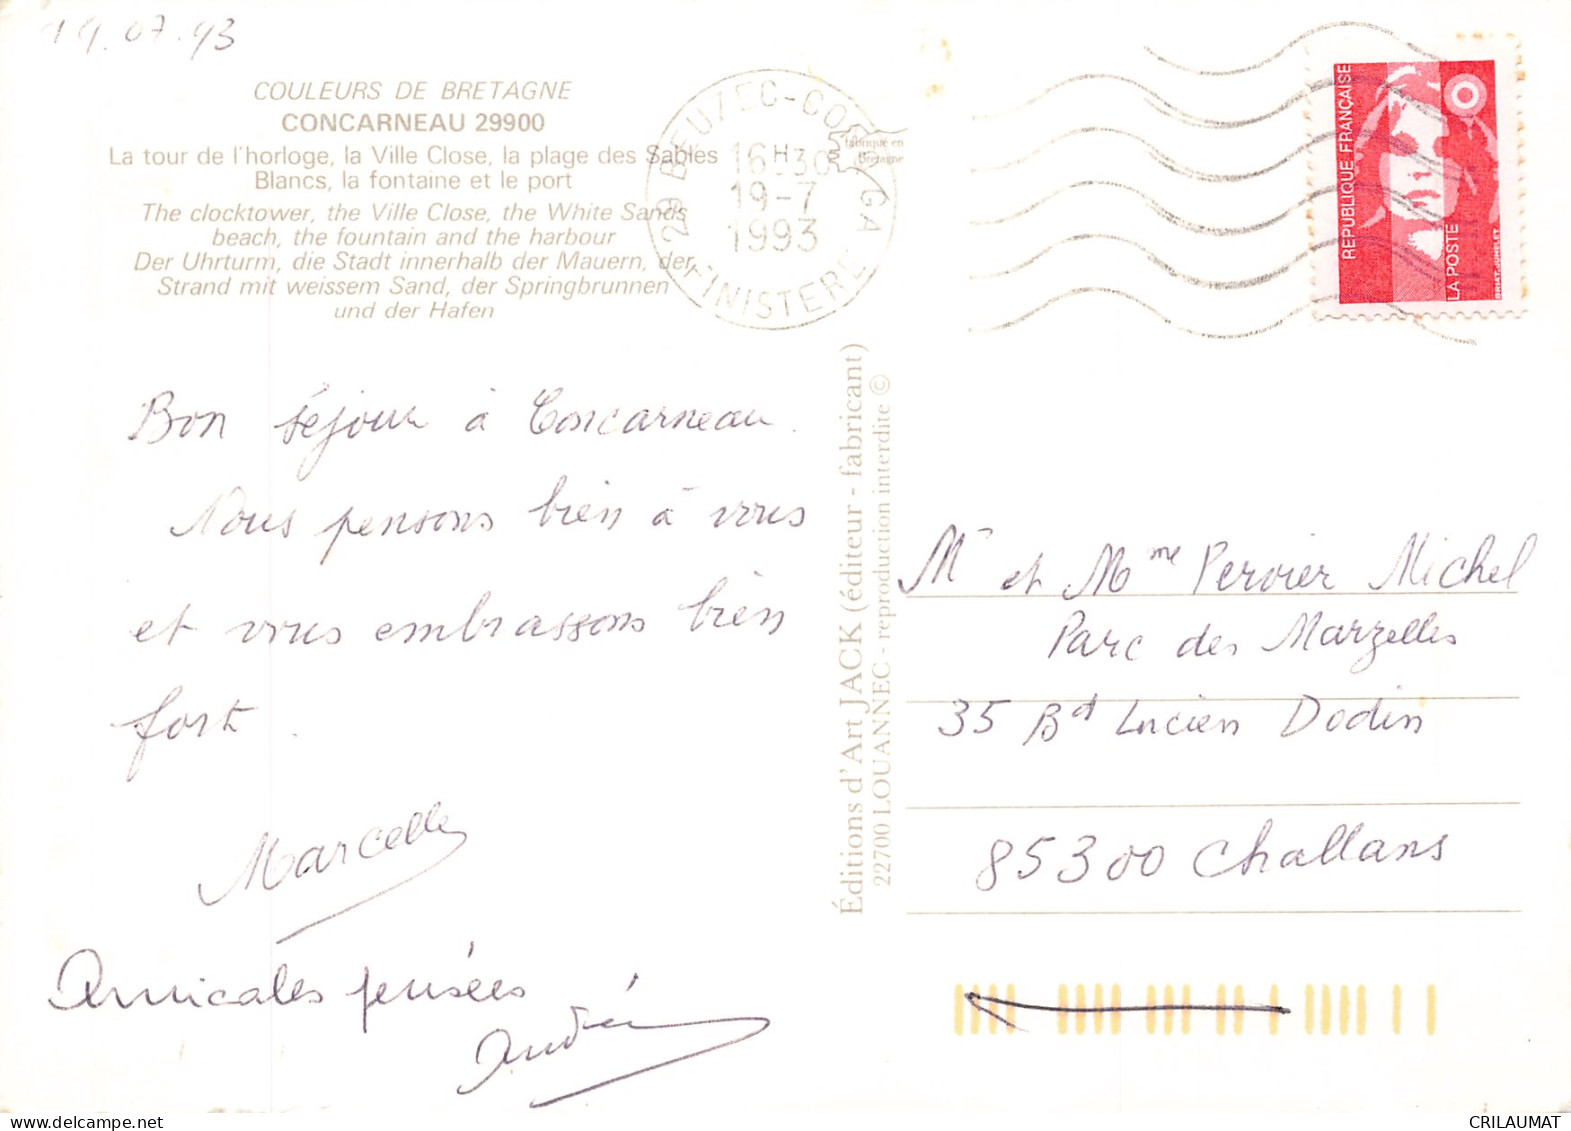 19.07.93
COULEURS DE BRETAGNE
CONCARNEAU 29900
La tour de l'horloge, la Ville Close, la plage des Sables
Blancs, la fontaine et le port
The clocktower, the Ville Close, the White Sands
beach, the fountain and the harbour
Der Uhrturm, die Stadt innerhalb der Mauern, der
Strand mit weissem Sand, der Springbrunnen
und der Hafen
29 BEUZEC-CONQ GA
16H30
19-7
1993
FINISTERE
fabriqué en
Bretagne
REPUBLIQUE FRANÇAISE
LA POSTE
BRIAT-JUMELET
Bon séjour à Concarneau.
Nous pensons bien à vous
et vous embrassons bien
fort.
Marcelle
Amicales pensées
André
Éditions d'Art JACK (éditeur - fabricant)
22700 LOUANNEC - reproduction interdite ©
Mr et Mme Pervier Michel
Parc des Marzelles
35 Bd Lucien Dodin
85300 Challans
CRILAUMAT